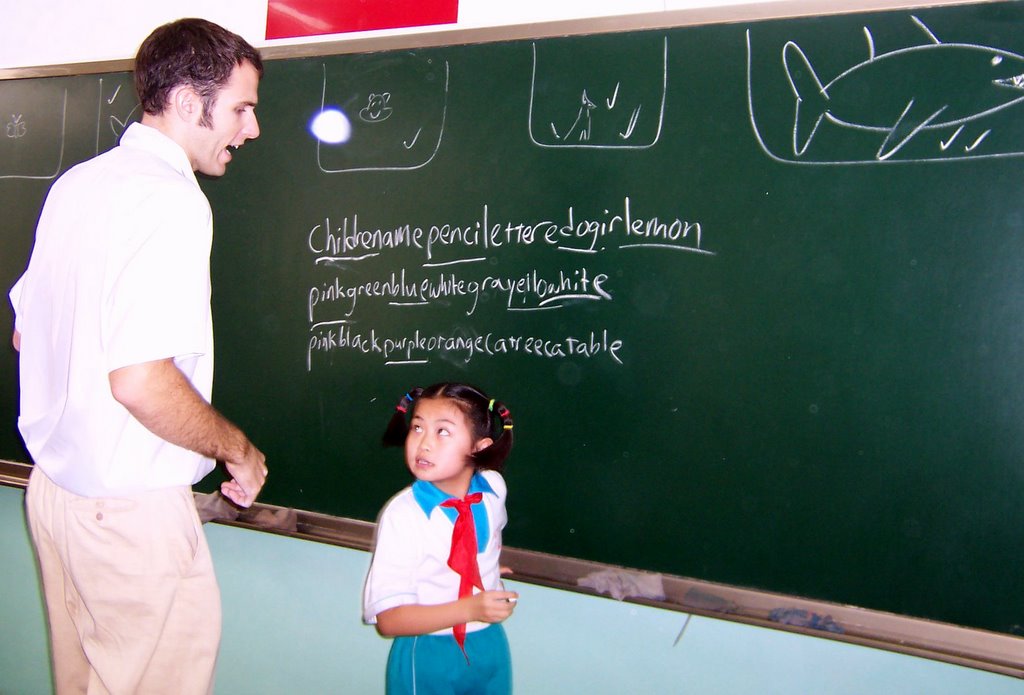 childrenamepenciletteredogirlemon
pinkgreenbluewhitegrayeilowhite
pinkblackpurpleorangecatreecatable